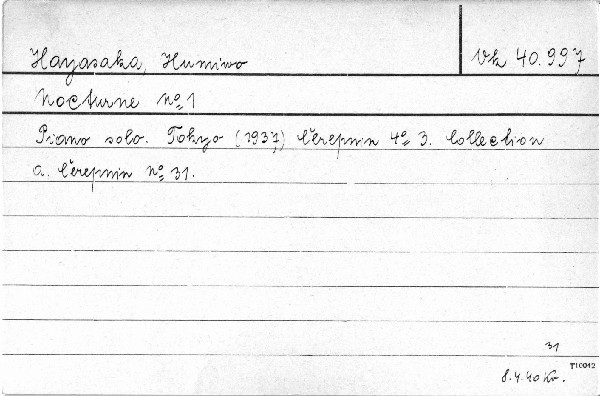 Hayasaka, Humiwo
Vk 40.997
Nocturne nº 1
Piano solo. Tokyo (1937) Čerepnin 4º 3. Collection
a. Čerepnin nº 31.
31
T10012
8.4.40 Kr.